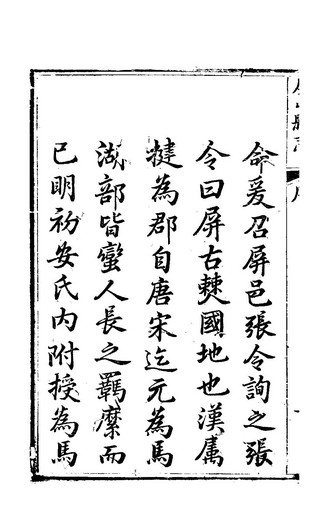 命爰召屏邑張令詢之張
令曰屏古僰國地也漢属
犍為郡自唐宋迄元為馬
湖部皆蠻人長之羈縻而
已明初安氏内附授為馬